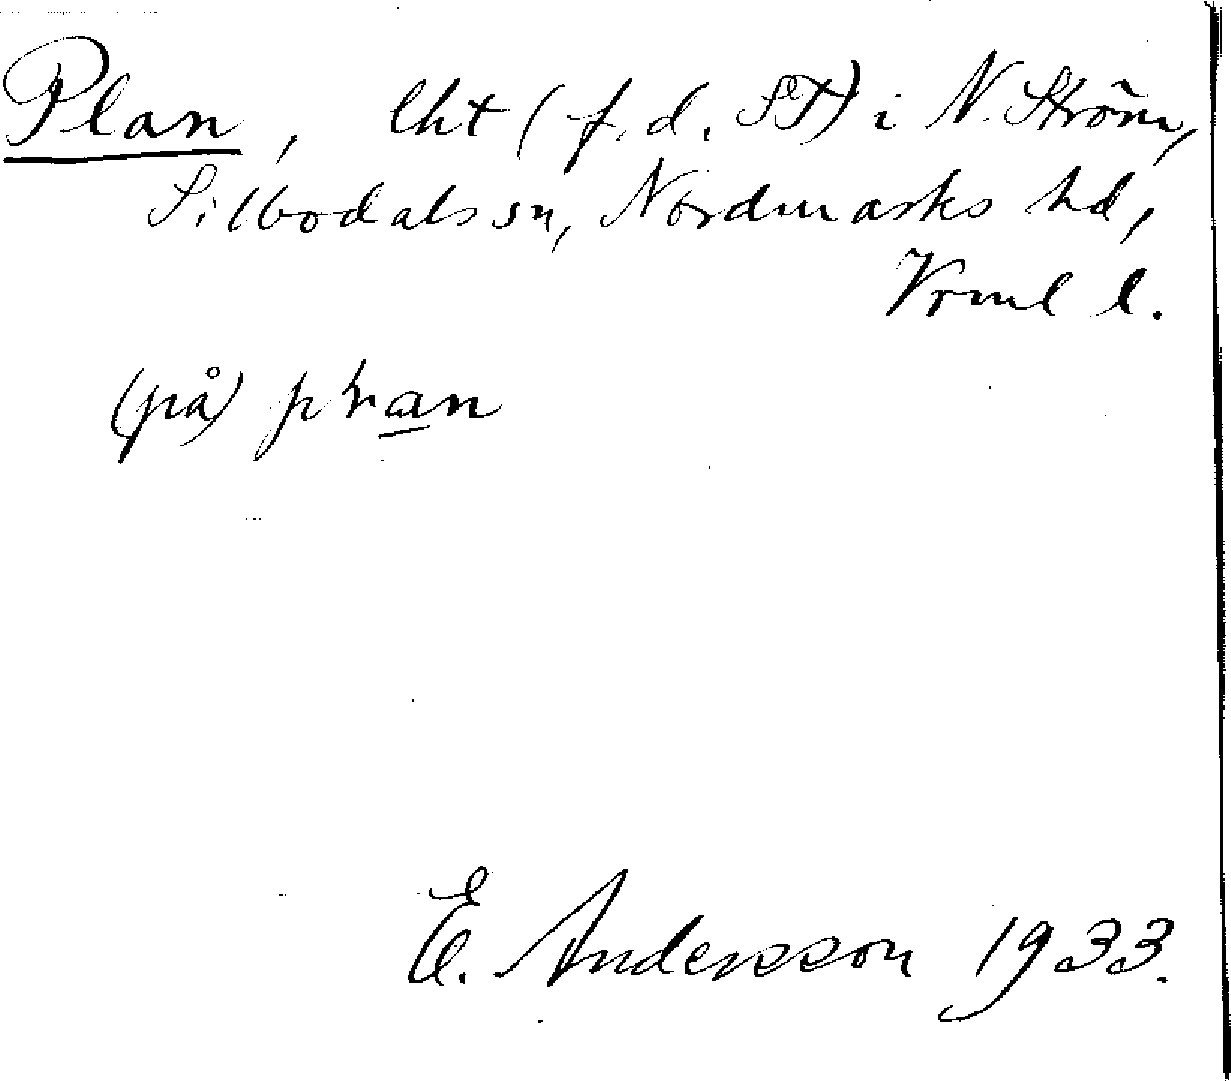 Plan, lht (f. d. ST) i N. Ström,
Silbodals sn, Nordmarks hd,
Vrml l.
(på)
E. Andersson 1933.